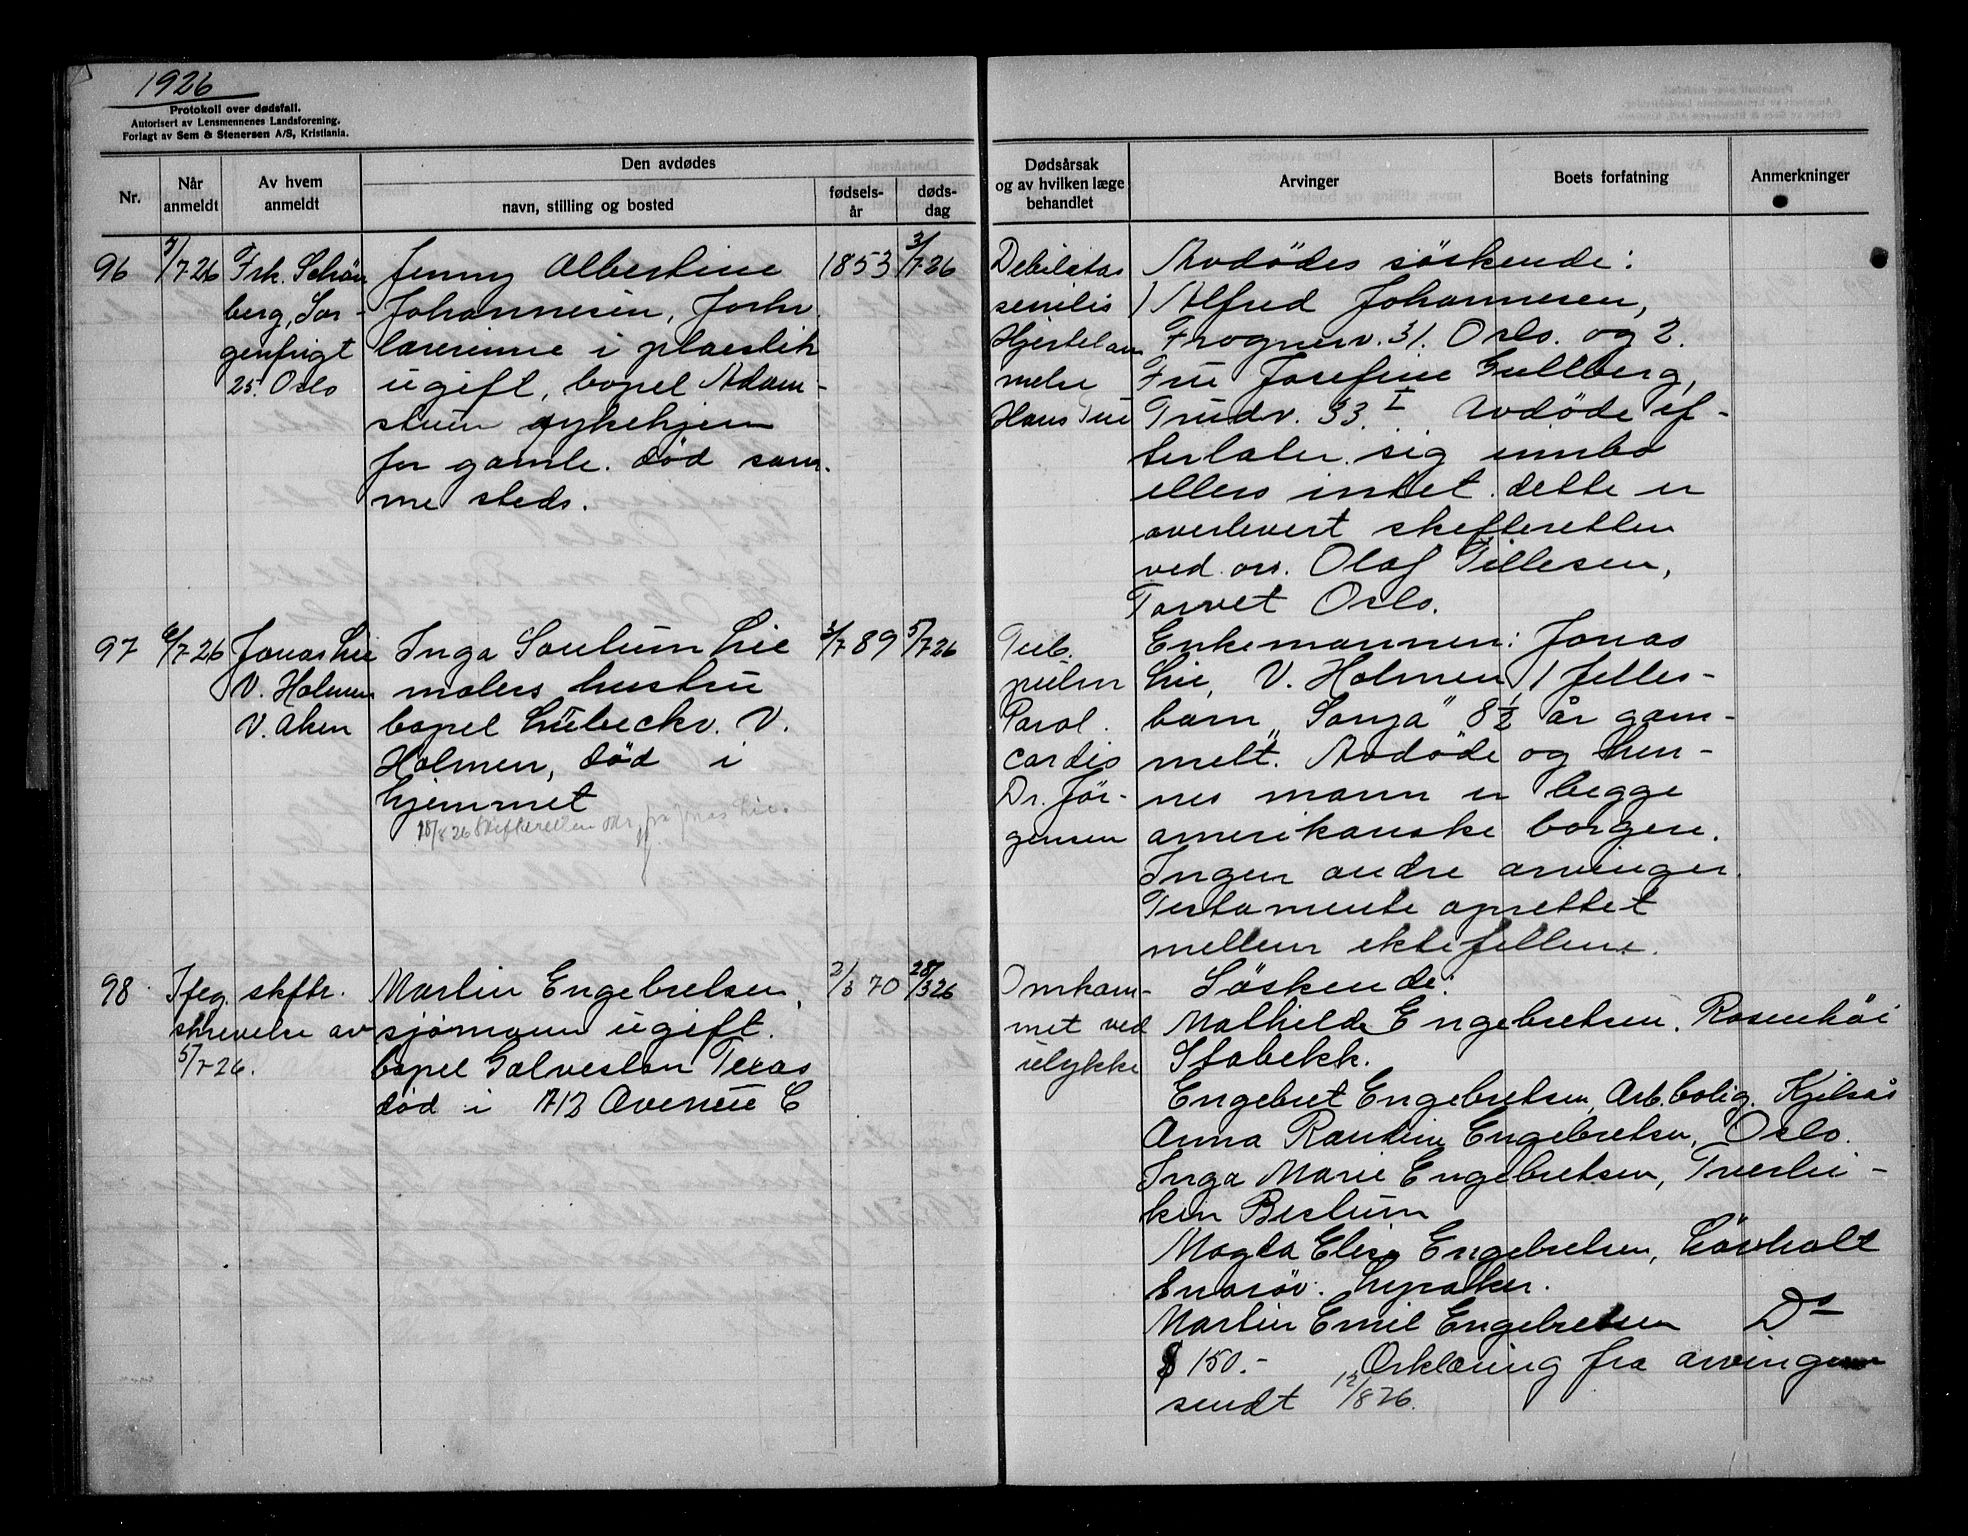 1926
Protokoll over dødsfall.
Autorisert av Lensmennenes Landsforening.
Forlagt av Sem & Stenersen A/S, Kristiania.
Nr.
Når anmeldt
Av hvem anmeldt
Den avdødes
navn, stilling og bosted
fødsels-år
døds-dag
Dødsårsak og av hvilken læge behandlet
Arvinger
Boets forfatning
Anmerkninger
96
5/7-26
Frk. Schön
berg, Sor-
genfrigt
25. Oslo
Jenny Albertine
Johannesen, Forhv.
lærerinne i
ugift, bopel Adam-
stuen sykehjem
for gamle. død sam-
me steds.
1853
3/7-26
Debilitas
senilis
Hjertelam
melse
Hans Tue
Avdødes söskende:
1/ Alfred Johannesen,
Frognerv. 31. Oslo. og 2.
Frue Josefine Gullberg,
Trudv. 33 I Avdøde ef-
terlater sig innbo
ellers intet. dette er
overlevert skifteretten
ved ors. Olaf Tillesen,
Torvet Oslo.
97
6/7-26
Jonas Lie
V. Holmen
V. Aker
Inga Sontum Lie
malers hustru
bopel Lübeckv. V.
Holmen, død i
hjemmet
18/8 26 Skifteretten fra Jonas Lie.
3/7 89
5/7-26
Tub.
pulm
Paral.
cordis
Dr. Jör-
gensen
Enkemannen: Jonas
Lie, V. Holmen 1 felles-
barn „Sonja" 8½ år gam-
melt. Avdøde og hen-
nes mann er begge
amerikanske borgere.
Ingen andre arvinger.
Testamente oprettet
mellem ektefellene.
98
Ifeg. skftr.
skrivelse av
5/7-26.
Martin Engebretsen,
sjömann ugift.
bopel Galveston Texas
död i 712 Avenue C
2/3 70
28/3 26
Omkom-
met ved
ulykke
Söskende:
Mathilde Engebretsen, Rosenhöi
Stabekk.
Engebret Engebretsen, Arb.bolig. Kjelsås
Anna Randine Engebretsen, Oslo.
Inga Marie Engebretsen, Tverlei-
ken Bestum
Magda Elise Engebretsen, Lövholt
Enaröv. Lysaker.
Martin Emil Engebretsen Do
$ 150.- Erklæring fra arvingene
sendt 12/8 26.